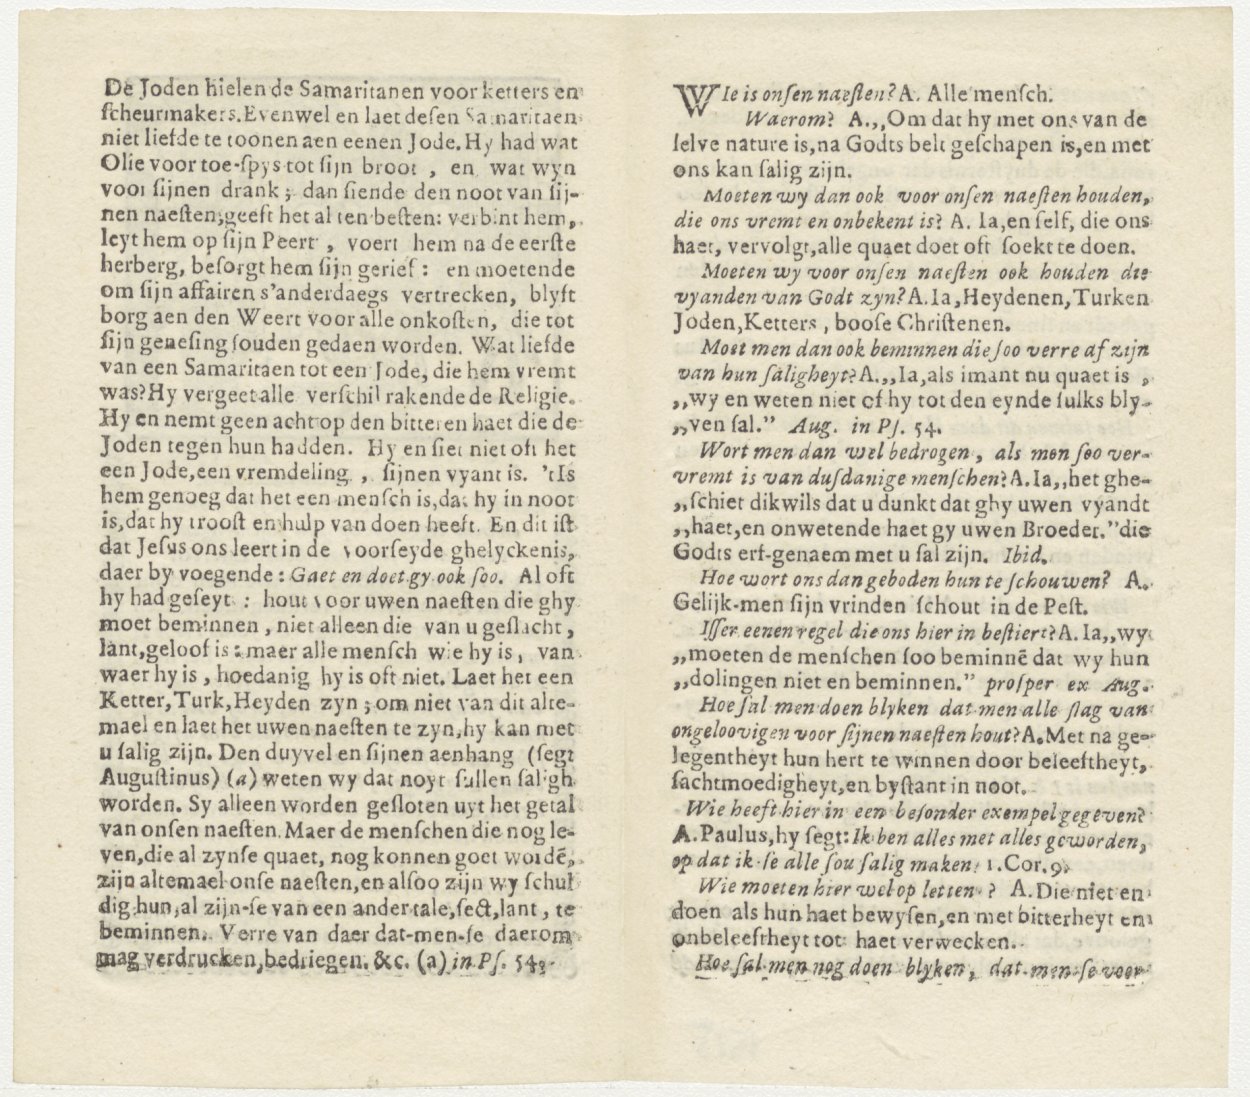 De Joden hielen de Samaritanen voor ketters en
ſcheurmakers. Evenwel en laet deſen Samaritaen
niet liefde te toonen aen eenen Jode. Hy had wat
Olie voor toe-ſpys tot ſijn broot , en wat wyn
voor ſijnen drank ; dan ſiende den noot van ſij-
nen naeſten, geeft het al ten beſten: verbint hem,
leyt hem op ſijn Peert , voert hem na de eerſte
herberg, beſorgt hem ſijn gerief : en moetende
om ſijn affairen s'anderdaegs vertrecken, blyft
borg aen den Weert voor alle onkoſten, die tot
ſijn geneſing ſouden gedaen worden. Wat liefde
van een Samaritaen tot een Jode, die hem vremt
was? Hy vergeet alle verſchil rakende de Religie.
Hy en nemt geen acht op den bitteren haet die de
Joden tegen hun hadden. Hy en ſiet niet oft het
een Jode, een vremdeling , ſijnen vyant is. 'tIs
hem genoeg dat het een menſch is, dat hy in noot
is, dat hy trooſt en hulp van doen heeft. En dit iſt
dat Jeſus ons leert in de voorſeyde ghelyckenis,
daer by voegende : Gaet en doet gy ook ſoo. Al oft
hy had geſeyt : hout voor uwen naeſten die ghy
moet beminnen , niet alleen die van u geſlacht ,
lant, geloof is : maer alle menſch wie hy is , van
waer hy is , hoedanig hy is oft niet. Laet het een
Ketter, Turk, Heyden zyn ; om niet van dit alte-
mael en laet het uwen naeſten te zyn, hy kan met
u ſalig zijn. Den duyvel en ſijnen aenhang (ſegt
Auguſtinus) (a) weten wy dat noyt ſullen ſaligh
worden. Sy alleen worden geſloten uyt het getal
van onſen naeſten. Maer de menſchen die nog le-
ven, die al zynſe quaet, nog konnen goet wordē,
zijn altemael onſe naeſten, en alſoo zijn wy ſchul
dig hun, al zijn-ſe van een ander tale, ſect, lant , te
beminnen. Verre van daer dat-men-ſe daerom
mag verdrucken, bedriegen. &c. (a) in Pſ. 54.
WIe is onſen naeſten? A. Alle menſch.
Waerom? A. ,,Om dat hy met ons van de
ſelve nature is, na Godts belt geſchapen is, en met
ons kan ſalig zijn.
Moeten wy dan ook voor onſen naeſten houden,
die ons vremt en onbekent is? A. Ia, en ſelf, die ons
haet, vervolgt, alle quaet doet oft ſoekt te doen.
Moeten wy voor onſen naeſten ook houden die
vyanden van Godt zyn? A. Ia, Heydenen, Turken
Joden, Ketters , booſe Chriſtenen.
Moet men dan ook beminnen die ſoo verre af zijn
van hun ſaligheyt? A. ,,Ia, als imant nu quaet is ,
,,wy en weten niet of hy tot den eynde ſulks bly-
,,ven ſal.” Aug. in Pſ. 54.
Wort men dan wel bedrogen , als men ſoo ver-
vremt is van duſdanige menſchen? A. Ia,,het ghe-
,,ſchiet dikwils dat u dunkt dat ghy uwen vyandt
,,haet, en onwetende haet gy uwen Broeder.”die
Godts erf-genaem met u ſal zijn. Ibid.
Hoe wort ons dan geboden hun te ſchouwen? A.
Gelijk-men ſijn vrinden ſchout in de Peſt.
Iſſer eenen regel die ons hier in beſtiert? A. Ia,,wy
,,moeten de menſchen ſoo beminnē dat wy hun
,,dolingen niet en beminnen.” proſper ex Aug.
Hoe ſal men doen blyken dat men alle ſlag van
ongeloovigen voor ſijnen naeſten hout? A. Met na ge-
legentheyt hun hert te winnen door beleeftheyt,
ſachtmoedigheyt, en byſtant in noot.
Wie heeft hier in een beſonder exempel gegeven?
A. Paulus, hy ſegt: Ik ben alles met alles geworden,
op dat ik ſe alle ſou ſalig maken. 1. Cor. 9.
Wie moeten hier wel op letten ? A. Die niet en
doen als hun haet bewyſen, en met bitterheyt en
onbeleeftheyt tot haet verwecken.
Hoe ſal men nog doen blyken, dat men-ſe voor